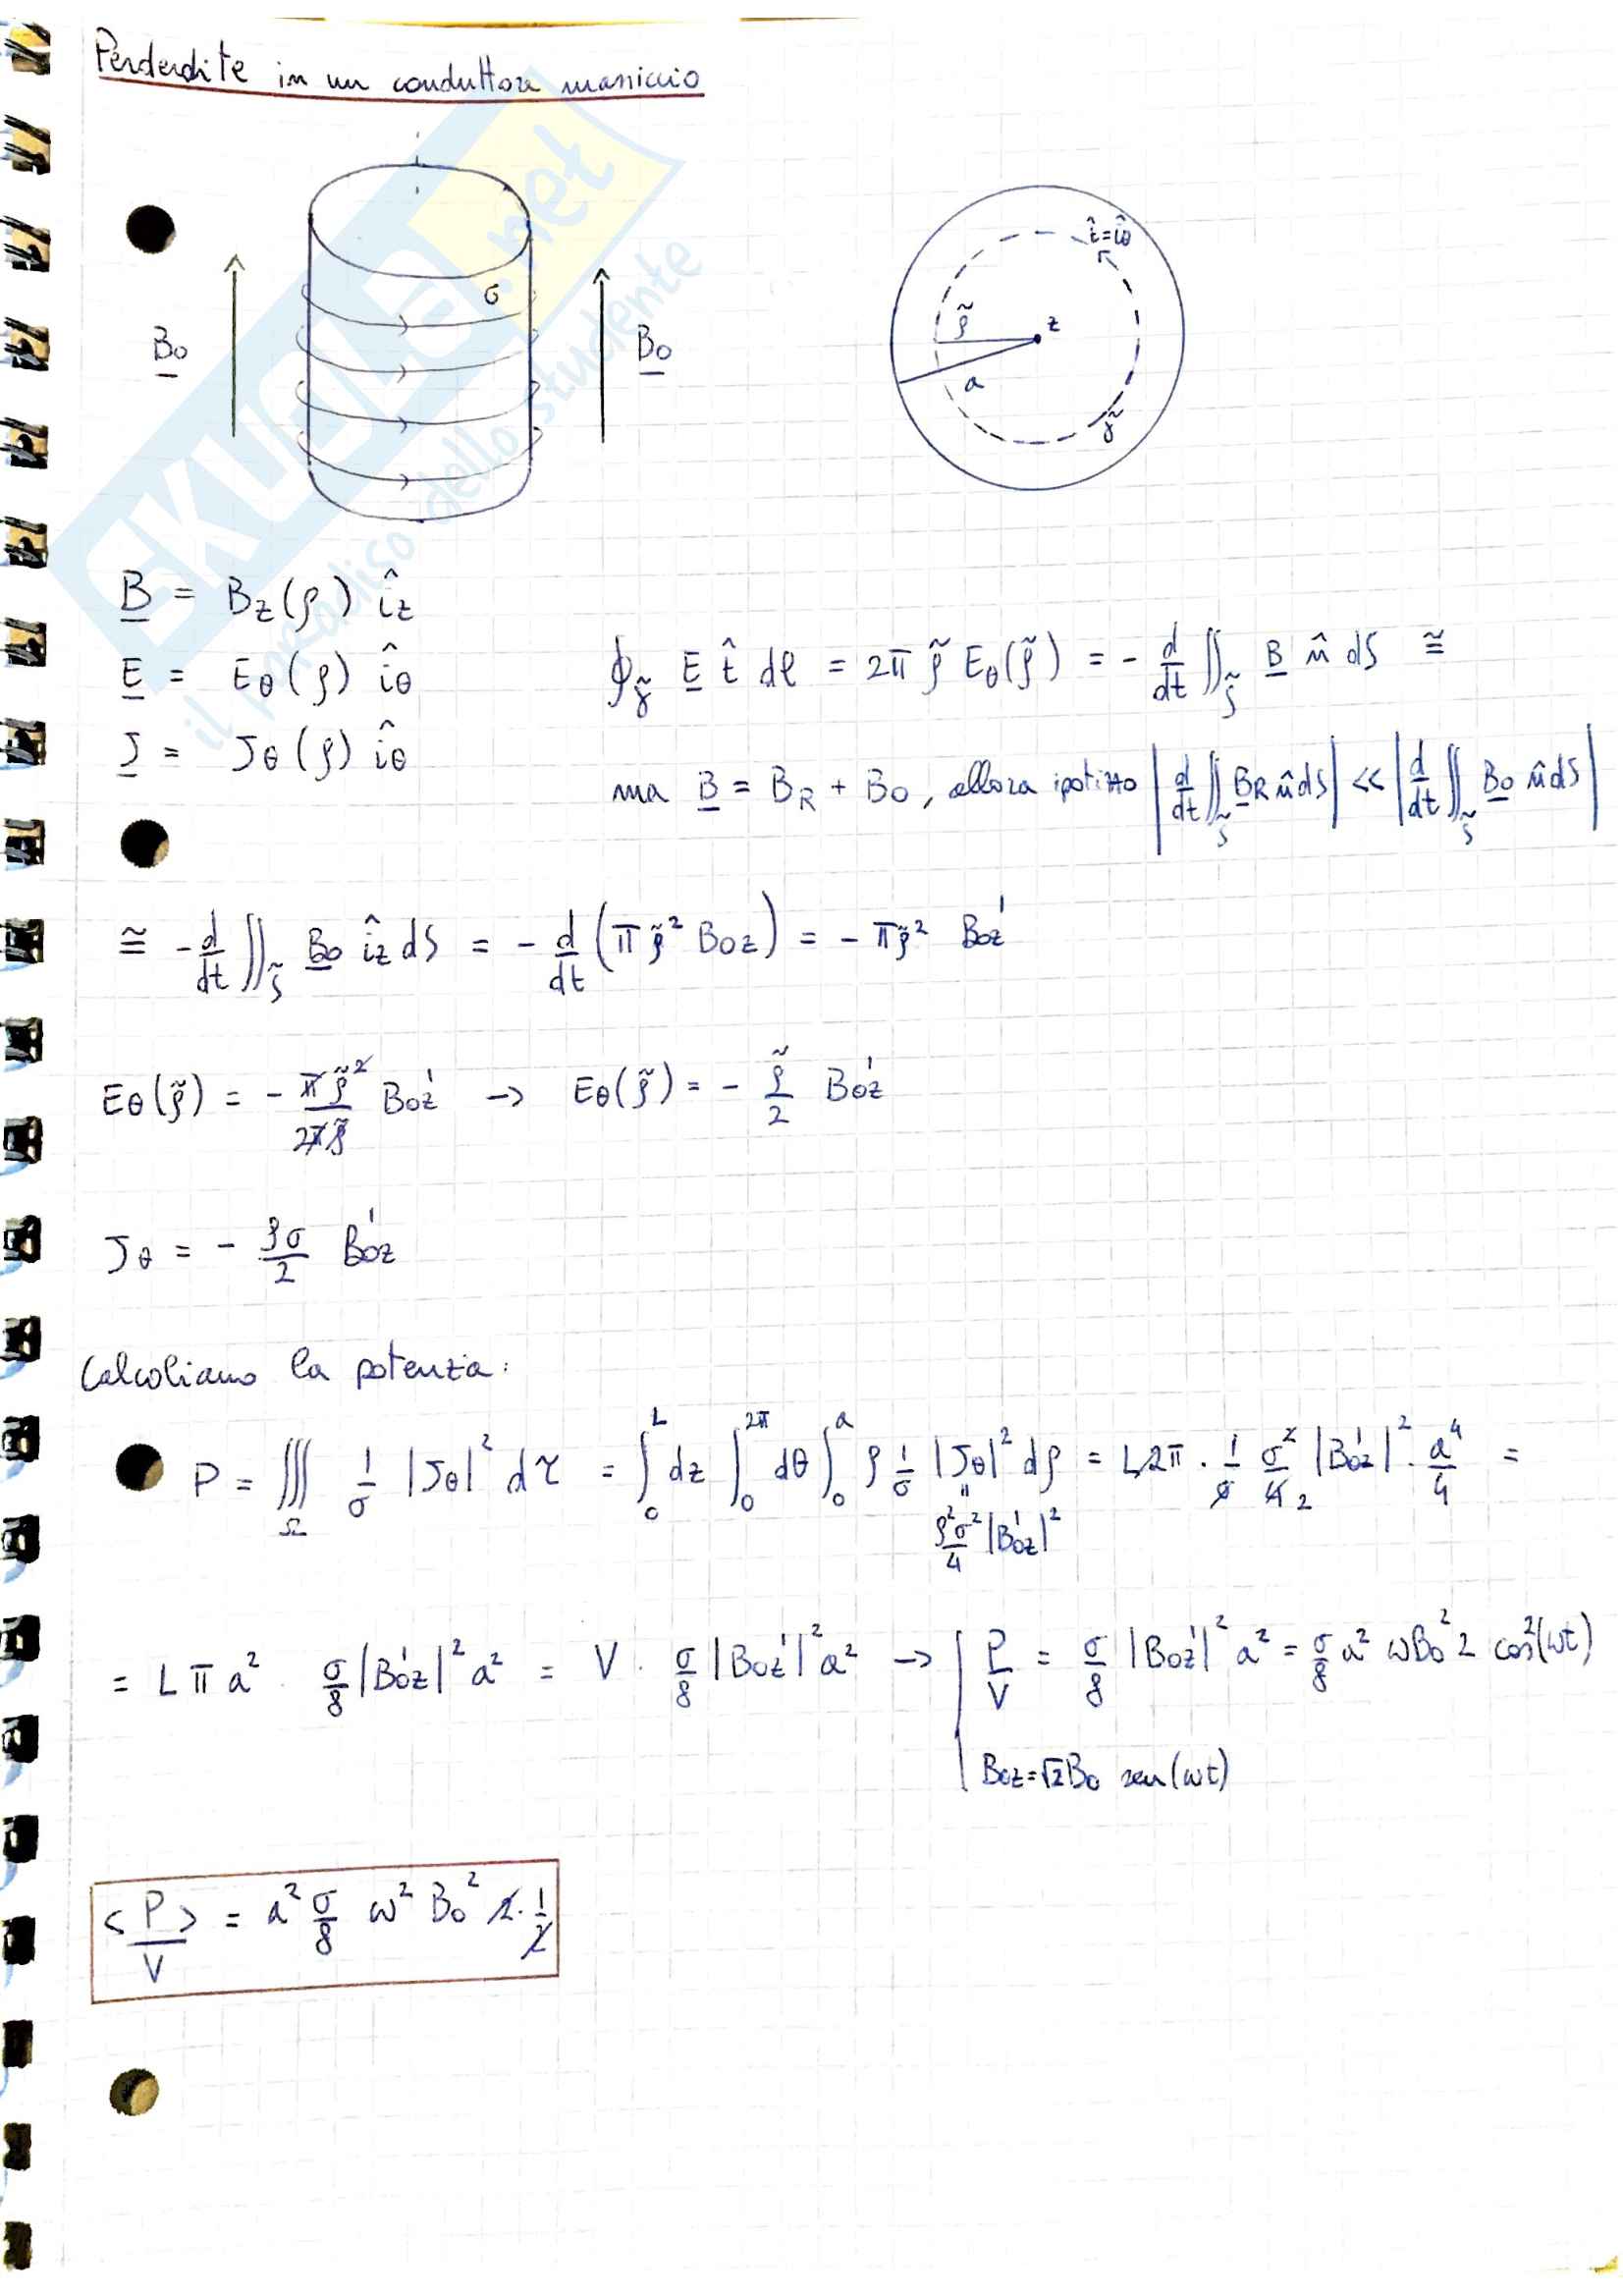 Perderdite in un conduttore massiccio
SKUOLA.net
il paradiso dello studente
B₀ σ B₀
t̂=î_θ
ρ̃ z
a
γ̃
B = B_z(ρ) î_z
E = E_θ(ρ) î_θ
J = J_θ(ρ) î_θ
∮_γ̃ E t̂ dl = 2π ρ̃ E_θ(ρ̃) = - d/dt ∬_S̃ B n̂ dS ≅
ma B = B_R + B_0, allora ipotizzo |d/dt ∬_S̃ B_R n̂ dS| << |d/dt ∬_S̃ B_0 n̂ dS|
≅ - d/dt ∬_S̃ B_0 î_z dS = - d/dt (π ρ̃² B_0z) = - π ρ̃² B_0z'
E_θ(ρ̃) = - πρ̃²/2πρ̃ B_0z' → E_θ(ρ̃) = - ρ̃/2 B_0z'
J_θ = - ρσ/2 B_0z'
Calcoliamo la potenza:
P = ∭_Ω 1/σ |J_θ|² dτ = ∫_0^L dz ∫_0^2π dθ ∫_0^a ρ 1/σ |J_θ|² dρ = L2π · 1/σ σ²/4 2 |B_0z'|² · a⁴/4 =
" ρ²σ²/4 |B_0z'|²
= L π a² · σ/8 |B_0z'|² a² = V · σ/8 |B_0z'|² a² → P/V = σ/8 |B_0z'|² a² = σ/8 a² ωB_0² 2 cos²(ωt)
B_0z = √2 B_0 sen(ωt)
<P>/V = a² σ/8 ω² B_0² 2 · 1/2